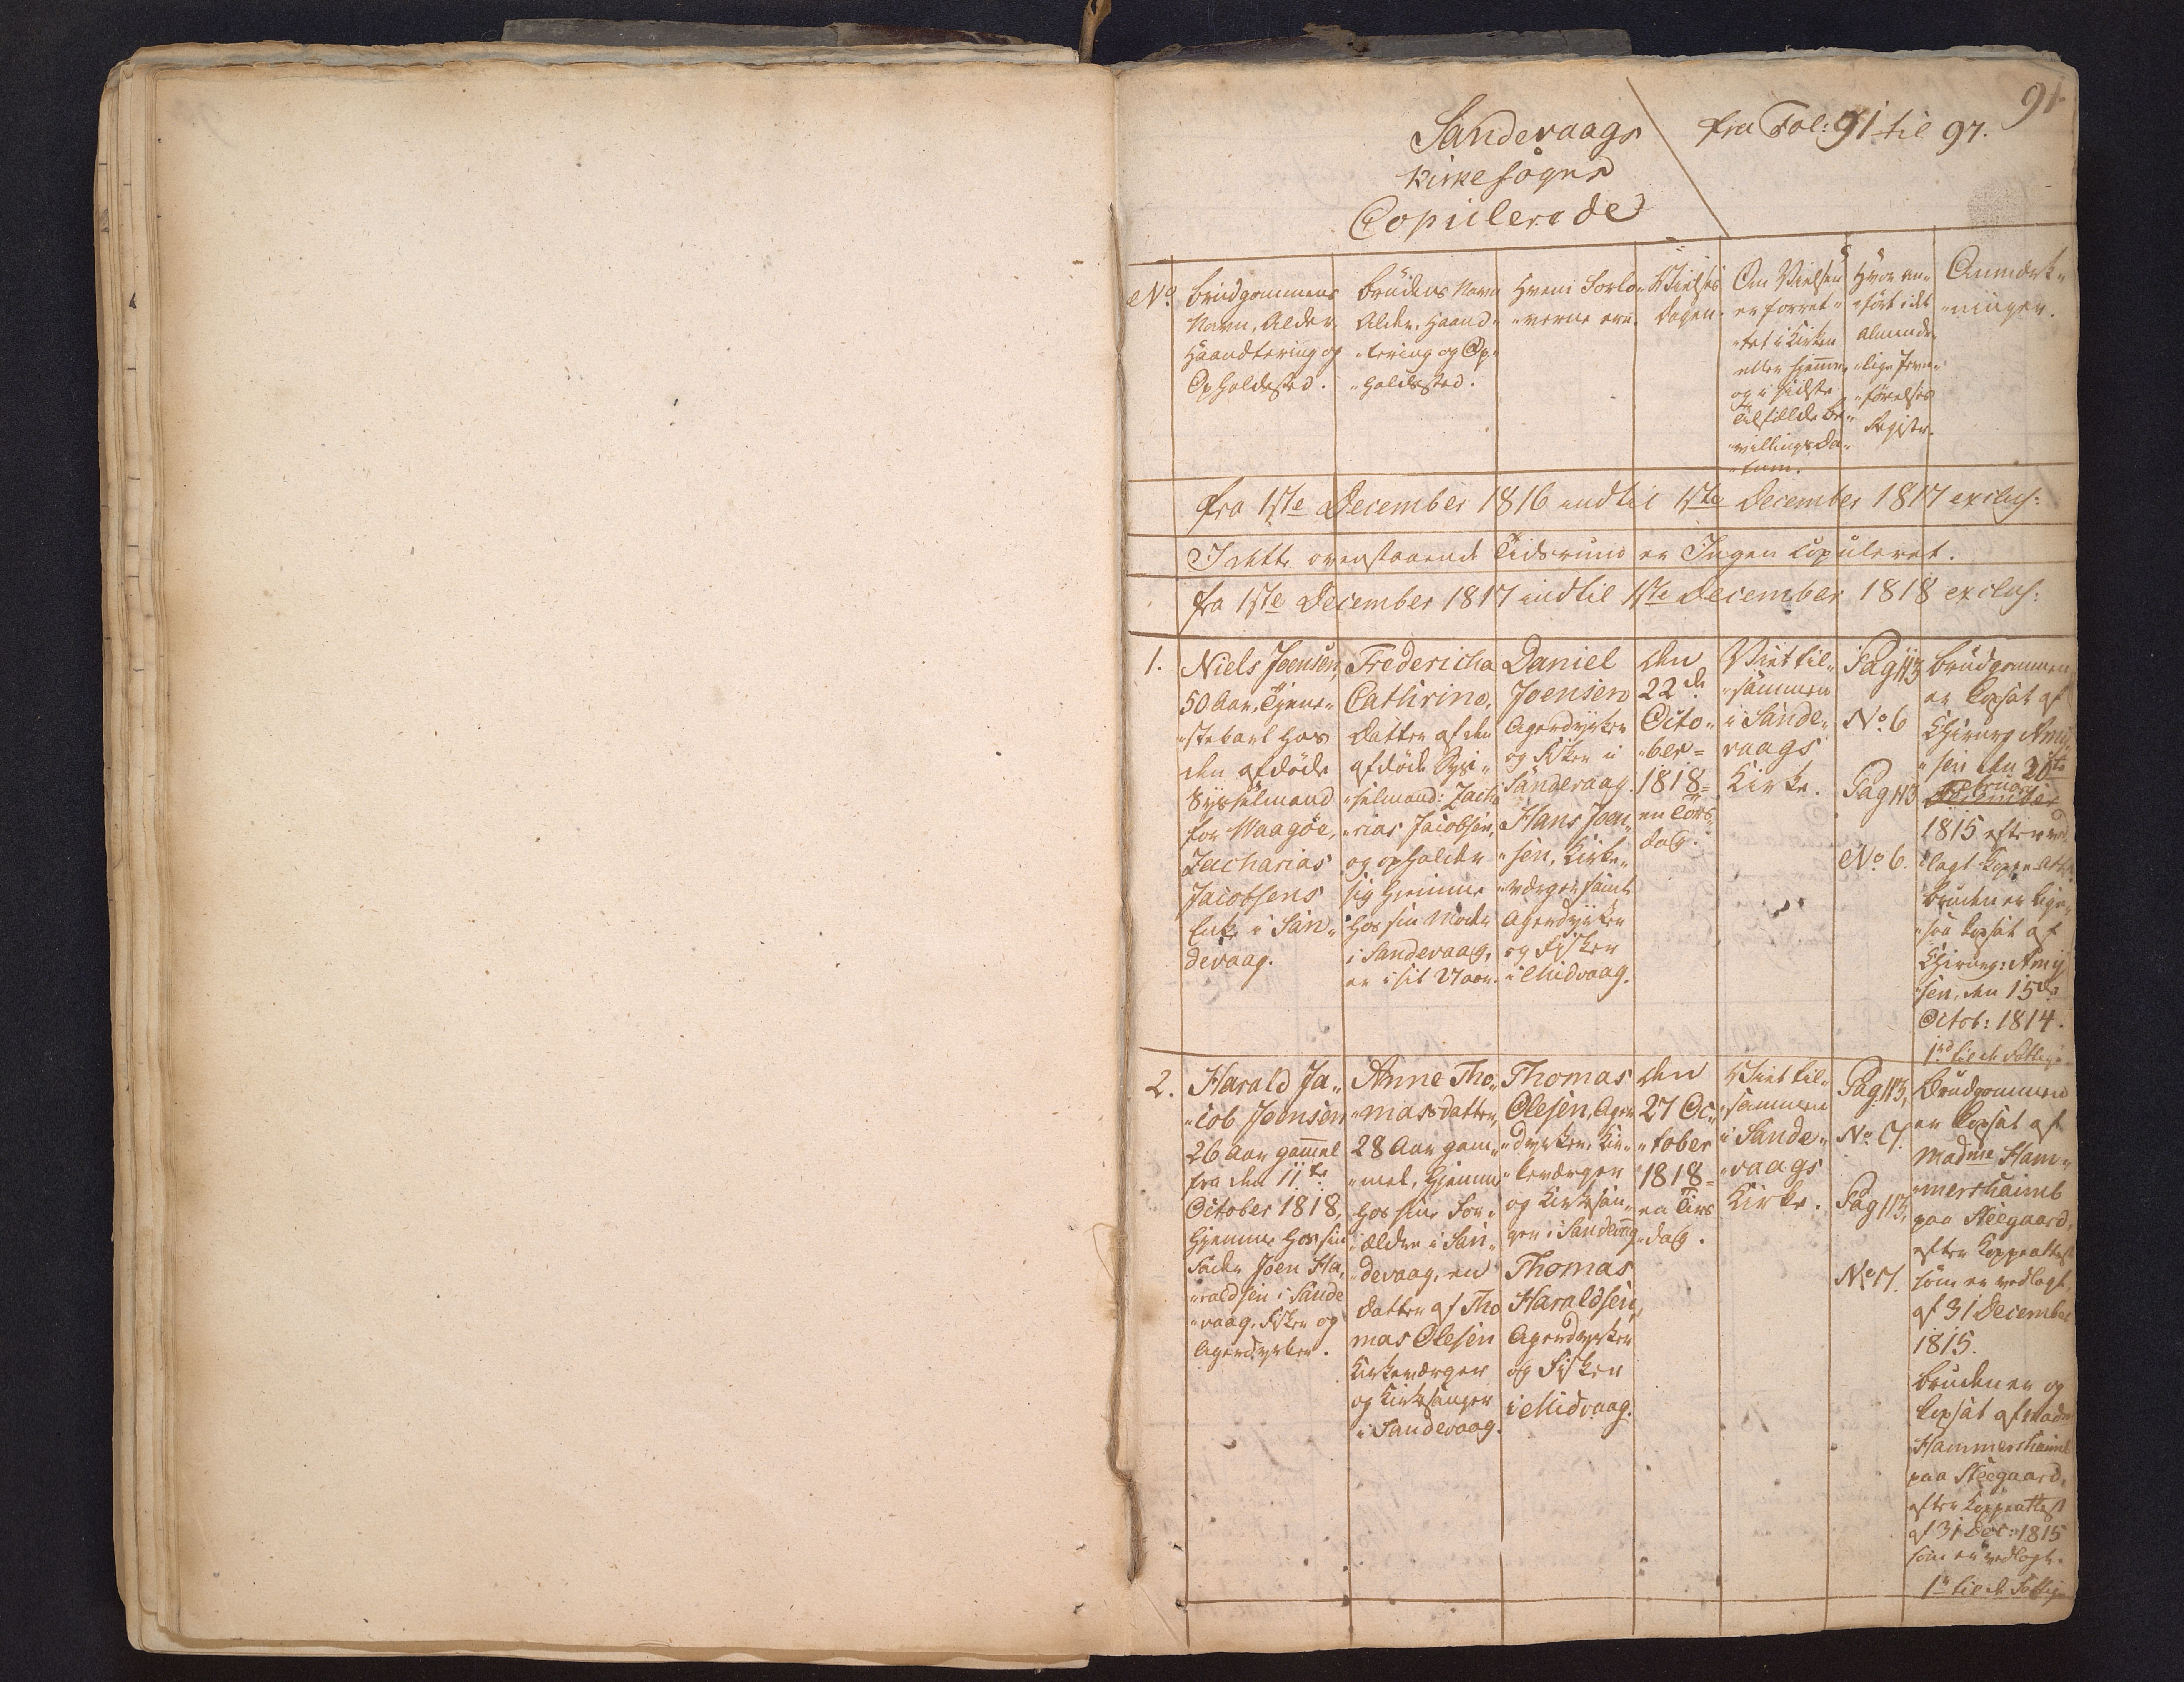 91
Sandevaags
Kirkesogns
Copulerede
fra Fol: 91 til 97.
No.
Brudgommens
Navn, Alder,
Haandtering og
Opholdssted.
Brudens Navn
Alder, Haand„
„tering og Op„
„holdssted.
Hvem Forlo„
„verne ere.
Vielses
Dagen.
Om Vielsen
er forret„
„tet i Kirken
eller hjemme,
og i sidste
Tilfælde Be„
„villings Da„
„tum.
Hvor an„
„ført i det
alminde„
„lige Jevn„
„førelses
Register.
Anmærk„
„ninger.
fra 1ste December 1816 indtil 1ste December 1817 exclus:
I dette ovenstaaende Tidsrum er Ingen copuleret.
fra 1ste December 1817 indtil 1ste December 1818 exclus:
1.
Niels Joensen,
50 Aar, Tjene„
„stekarl hos
den afdøde
Sysselmand
for Waagøe,
Zacharias
Jacobsens
Enke i San„
devaag.
Fredericha
Cathrine,
Datter af den
afdøde Sys„
„selmand: Zacha
„rias Jacobsen,
og opholder
sig hjemme
hos sin Moder
i Sandevaag,
er i sit 27 aar.
Daniel
Joensen
Agerdyrker
og Fisker i
Sandevaag.
Hans Joen„
„sen, Kirke„
„værger samt
Agerdyrker
og Fisker
i Midvaag.
den
22de
Octo„
„ber=
1818=
en Tors„
dag.
Viet til„
„sammen
i Sande„
vaags
Kirke.
Pag 113
No. 6
Pag 113
No. 6.
Brudgommen
er Copsat af
Chirurg Amy„
„sen den 20de
Februar
December
1815 efter ved„
„lagt Koppe Att
Bruden er lige„
„saa Copsat af
Chirurg: Amy
„sen, den 15de
Octob: 1814.
1rd til de Fattige
2.
Harald Ja„
„cob Joensen
26 Aar gammel
fra den 11te
October 1818,
hjemme hos sin
Fader Joen Ha„
„raldsen i Sande
„vaag, Fisker og
Agerdyrker.
Anne Tho„
„masdatter,
28 Aar gam„
„mel, hjemme
hos sine For„
„ældre i San„
„devaag, en
Datter af Tho
mas Olesen
Kirkeværger
og Kirkesanger
i Sandevaag.
Thomas
Olesen, Ager
„dyrker, Kir„
„keværger
og Kirkesan„
ger i Sandevaag
Thomas
Haraldsen,
Agerdyrker
og Fisker
i Midvaag.
den
27 Oc„
„tober
1818=
en Tirs
„dag.
Viet til„
„sammen
i Sande„
„vaags
Kirke.
Pag. 113,
No. 7.
Pag 113,
No 7.
Brudgommen
er Copsat af
Madme Ham„
„mershaimb
paa Steegaard,
efter Koppeattest
som er vedlagt
af 31 December
1815.
Bruden er og
Copsat af Madm
Hammershaimb
paa Steegaard,
efter Koppeattest
af 31 Dec: 1815
som er vedlagt.
til de Fattige